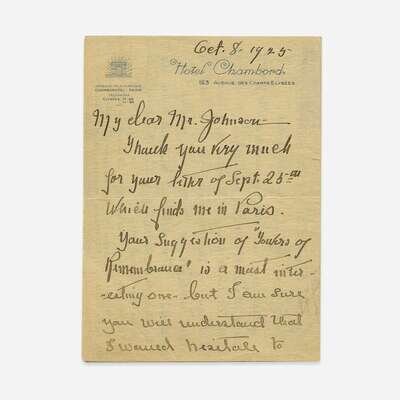 Oct. 8. 1925
Hotel Chambord
123 AVENUE DES CHAMPS ELYSEES
My dear Mr. Johnson-
Thank you very much
for your letter of Sept. 25th
which finds me in Paris.
Your suggestion of "Towers of
Remembrance" is a most inter-
-esting one - but I am sure
you will understand that
I would hesitate to